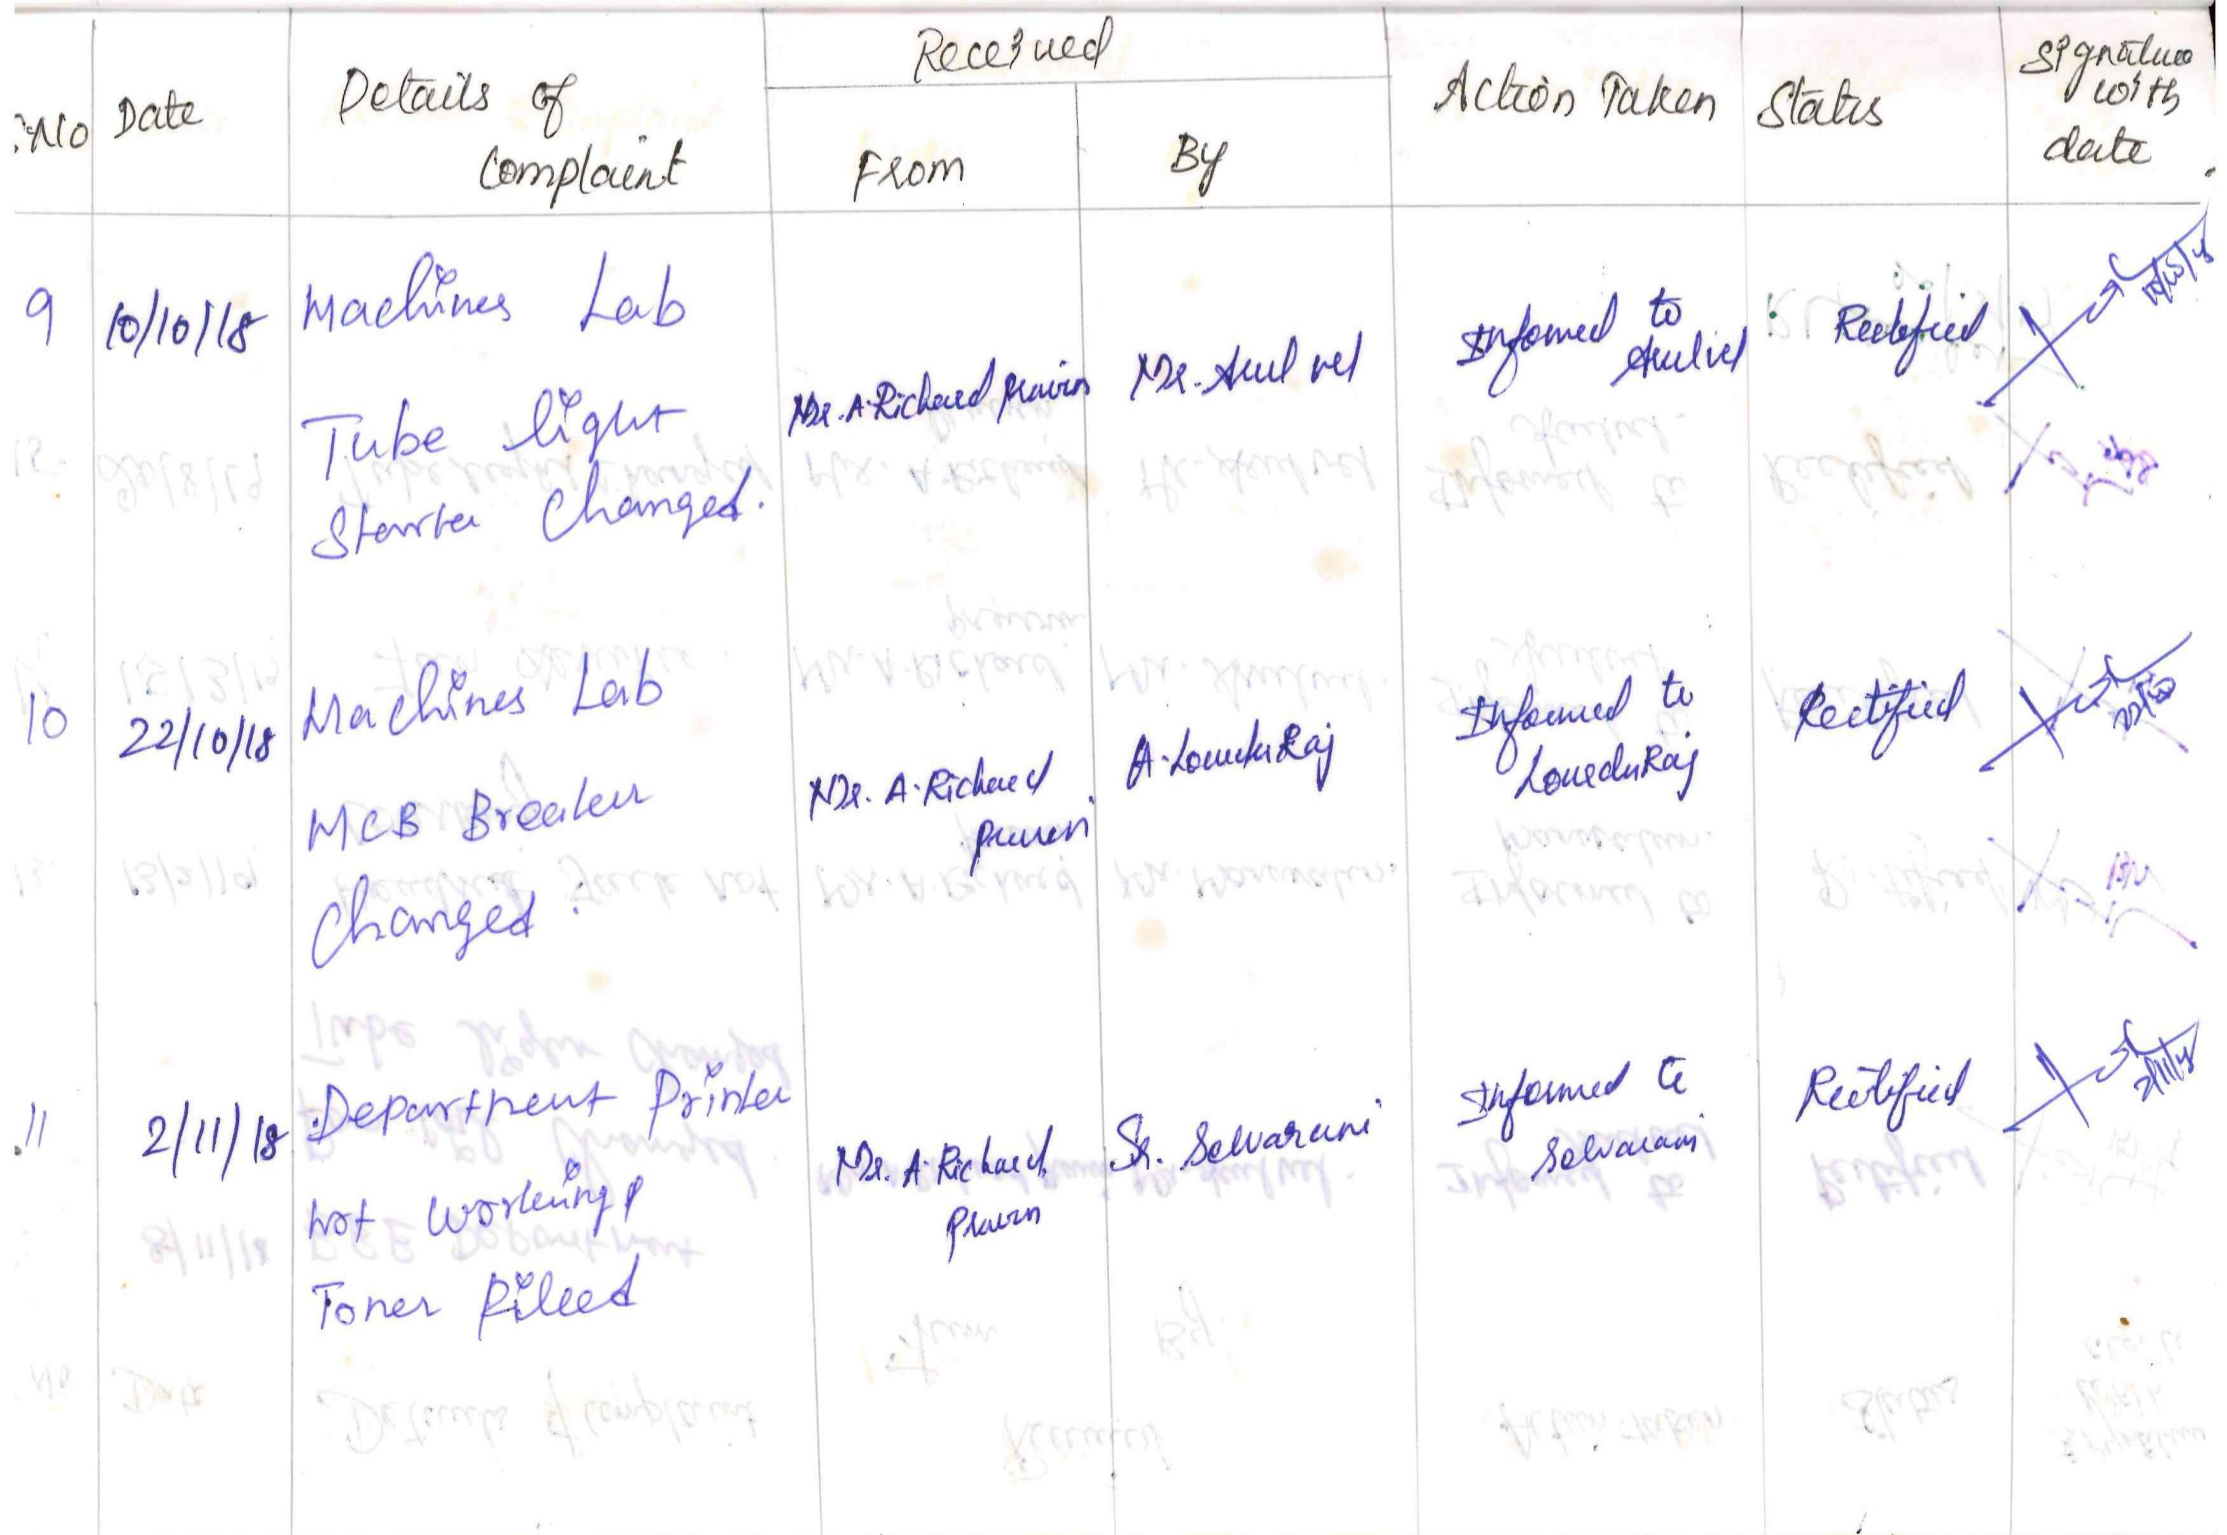 S.No Date Details of Complaint Received Action Taken Status Signature with date
From By
9 10/10/18 Machines Lab
Tube light
Starter Changed.
Mr. A. Richard Pravin Mr. Arul vel Informed to
Arulvel
Rectified 10/10/18
10 22/10/18 Machines Lab
MCB Breaker
Changed.
Mr. A. Richard
Pravin
A. LourduRaj Informed to
LourduRaj
Rectified 22/10
11 2/11/18 Department Printer
not working,
Toner filled
Mr. A. Richard
Pravin
Sr. Selvarani Informed to
Selvarani
Rectified 2/11/18